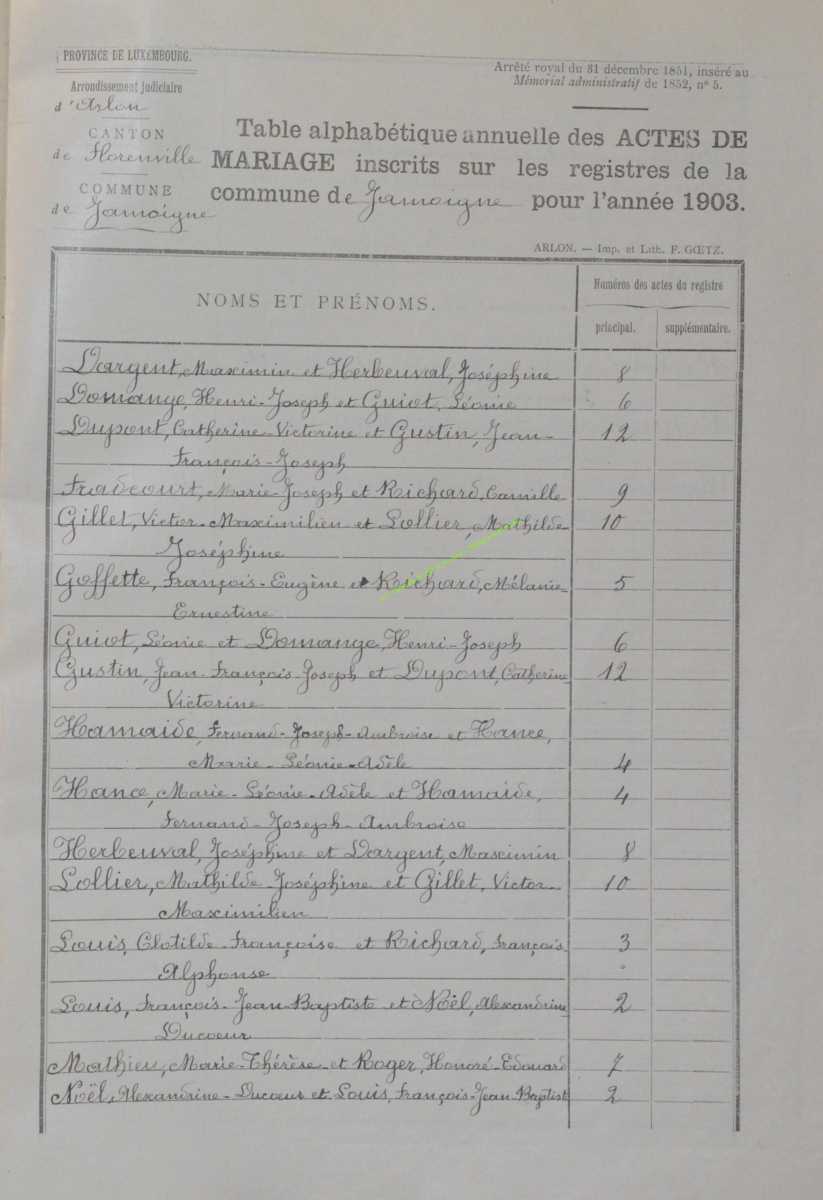 PROVINCE DE LUXEMBOURG.
Arrondissement judiciaire
d'Arlon
CANTON
de Florenville
COMMUNE
de Jamoigne
Arrêté royal du 31 décembre 1851, inséré au
Mémorial administratif de 1852, n° 5.
Table alphabétique annuelle des ACTES DE
MARIAGE inscrits sur les registres de la
commune de Jamoigne pour l'année 1903.
ARLON. — Imp. et Lith. F. GŒTZ.
NOMS ET PRÉNOMS.
Numéros des actes du registre
principal. supplémentaire.
Dargent, Maximin et Herbeuval, Joséphine 8
Domange, Henri-Joseph et Guiot, Léonie 6
Dupont, Catherine-Victorine et Gustin, Jean- 12
François-Joseph
Fradcourt, Marie-Joseph et Richard, Camille 9
Gillet, Victor-Maximilien et Lollier, Mathilde- 10
Joséphine
Goffette, François-Eugène et Richard, Mélanie- 5
Ernestine
Guiot, Léonie et Domange, Henri-Joseph 6
Gustin, Jean-François-Joseph et Dupont, Catherine 12
Victorine
Hamaide, Fernand-Joseph-Ambroise et Hance,
Marie-Léonie-Adèle 4
Hance, Marie-Léonie-Adèle et Hamaide, 4
Fernand-Joseph-Ambroise
Herbeuval, Joséphine et Dargent, Maximin 8
Lollier, Mathilde-Joséphine et Gillet, Victor- 10
Maximilien
Louis, Clotilde-Françoise et Richard, François- 3
Alphonse
Louis, François-Jean-Baptiste et Noël, Alexandrine 2
Ducoeur
Mathieu, Marie-Thérèse et Roger, Honoré-Edouard 7
Noël, Alexandrine-Ducoeur et Louis, François-Jean-Baptist 2